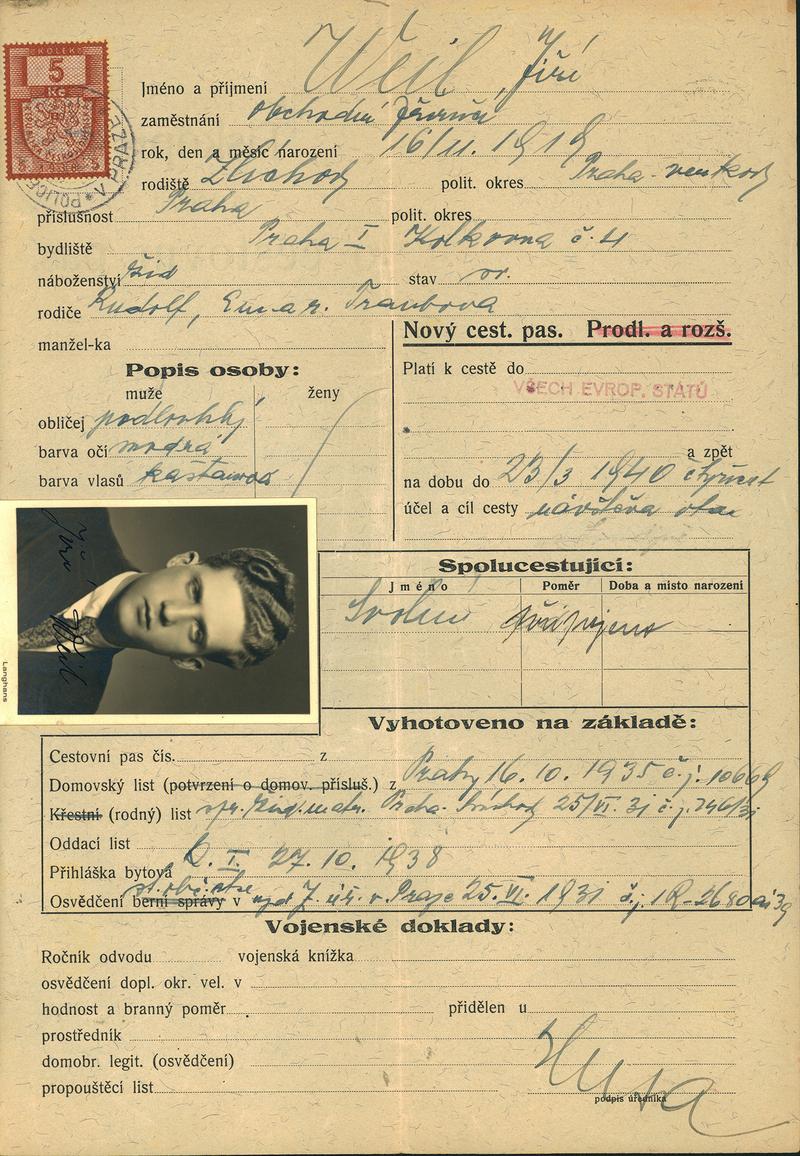 KOLEK
5
Kč
POLICE V PRAZE
Jméno a příjmení Weil, Jiří
zaměstnání obchodní
rok, den a měsíc narození 16/11. 1919
rodiště Zlíchov polit. okres Praha-venkov
příslušnost Praha polit. okres
bydliště Praha I Kolkovna č. 4
náboženství žid stav sv.
rodiče Rudolf, Ema r. Traubova
manžel-ka
Nový cest. pas. Prodl. a rozš.
Popis osoby:
muže ženy
obličej podlouhlý
barva očí modrá
barva vlasů kaštanová
Platí k cestě do
VŠECH EVROP. STÁTŮ
a zpět
na dobu do 23/3 1940
účel a cíl cesty návštěva
Jiří Weil
Langhans
Spolucestující:
Jméno Poměr Doba a místo narození
Vyhotoveno na základě:
Cestovní pas čís. z
Domovský list (potvrzení o domov. přísluš.) z Prahy 16. 10. 1935 č.j. 10669
Křestní (rodný) list žid. matr. Praha- 25/VI. 31 č. j. 246/31
Oddací list
Přihláška bytová P. I. 27. 10. 1938
st. obč.
Osvědčení berní správy v v Praze 25. VI. 1931 č.j.
Vojenské doklady:
Ročník odvodu vojenská knížka
osvědčení dopl. okr. vel. v
hodnost a branný poměr přidělen u
prostředník
domobr. legit. (osvědčení)
propouštěcí list
podpis úředníka